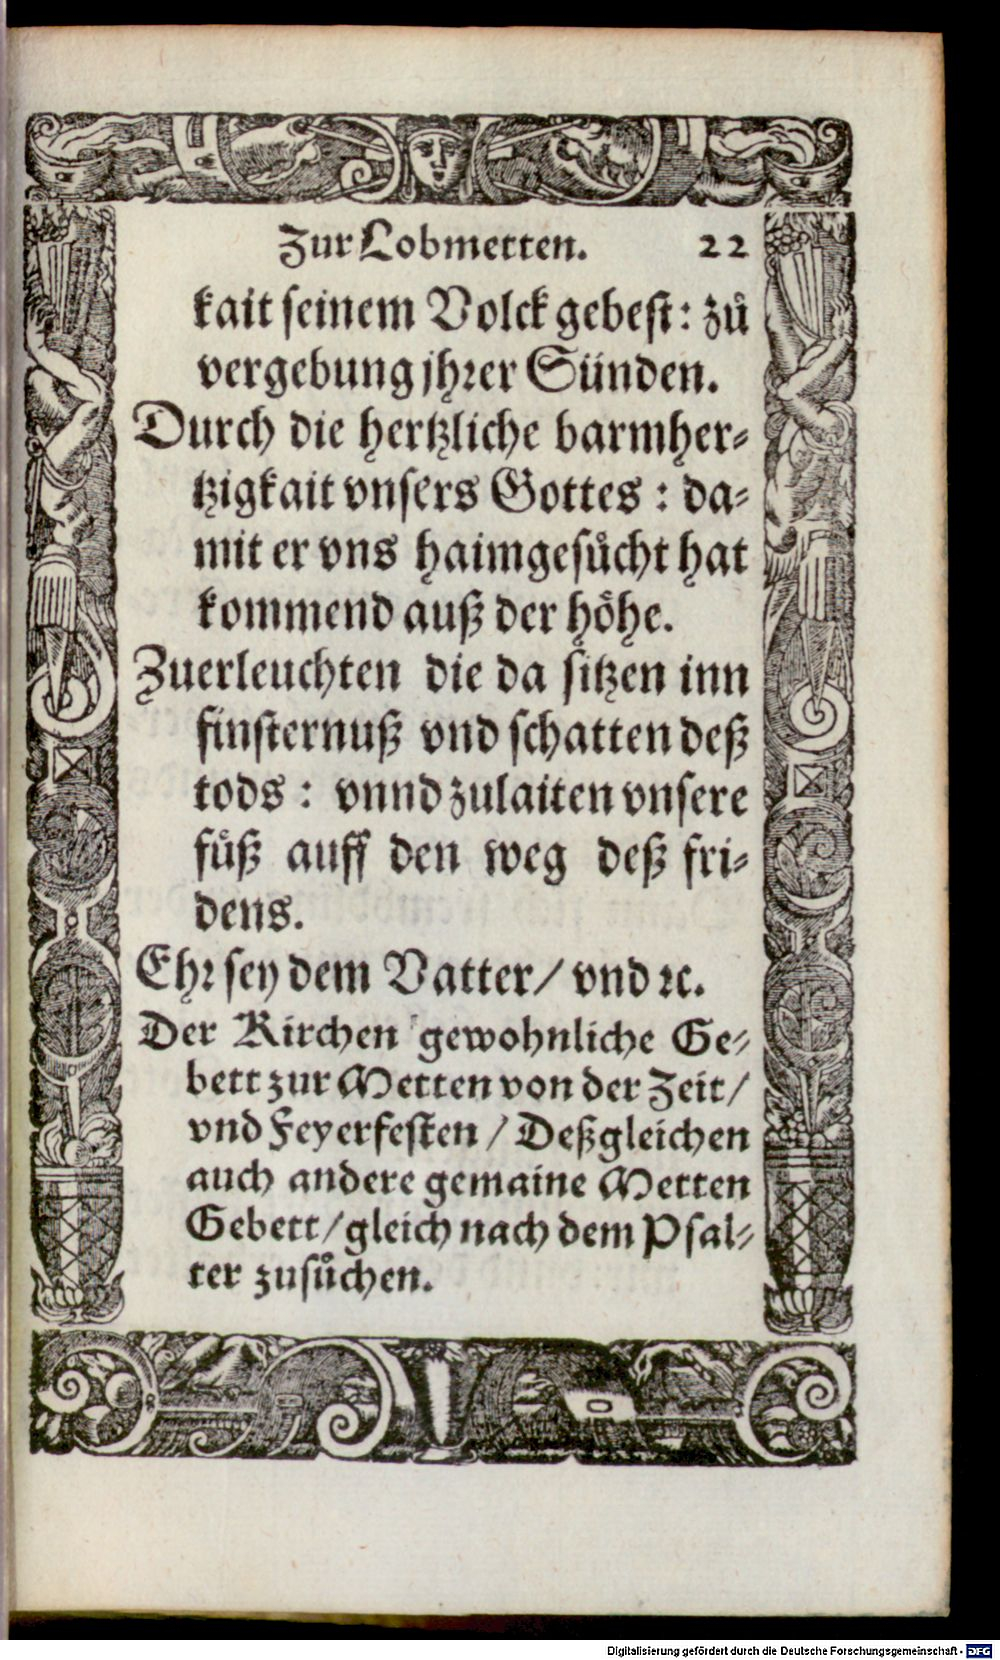 Zur Lobmetten. 22
kait seinem Volck gebest: zuͦ
vergebung jhrer Sünden.
Durch die hertzliche barmher-
tzigkait vnsers Gottes: da-
mit er vns haimgesuͦcht hat
kommend auß der höhe.
Zuerleuchten die da sitzen inn
finsternuß vnd schatten deß
tods: vnnd zulaiten vnsere
fuͤß auff den weg deß fri-
dens.
Ehr sey dem Vatter/ vnd ꝛc.
Der Kirchen gewohnliche Ge-
bett zur Metten von der Zeit/
vnd Feyerfesten/ Deßgleichen
auch andere gemaine Metten
Gebett/ gleich nach dem Psal-
ter zusuͦchen.
Digitalisierung gefördert durch die Deutsche Forschungsgemeinschaft - DFG